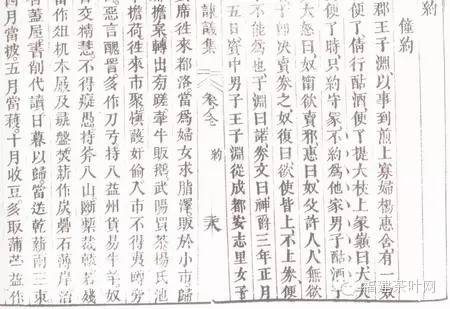 約
僮約
郡王子淵以事到煎上寡婦楊惠舍有一奴
便了倩行酤酒便了提大杖上冢巔曰大夫
便了時只約守冢不約為他家男子酤酒子
大怒曰奴甯欲賣邪惠曰奴父許人人無欲
子即決賣券之奴復曰欲使皆上不上券便
不能為也子淵曰諾券文曰神爵三年正月
五日資中男子王子淵從成都安志里女子
集 卷之 約
席往來都洛當為婦女求脂澤販於小市歸
擔枲轉出旁蹉牽牛販鵝武陽買茶楊氏池
擔荷往來市聚慎護奸偷入市不得夷蹲旁
惡言醜詈多作刀弓持入益州貨易牛羊奴
交精慧不得癡愚持斧入山斷輮裁轅若殘
當作俎机木屐及彘盤焚薪作炭石薄岸治
蓋屋書削代牘日暮以歸當送乾薪兩三束
四月當披五月當穫十月收豆多取蒲苧益作
福建茶叶网